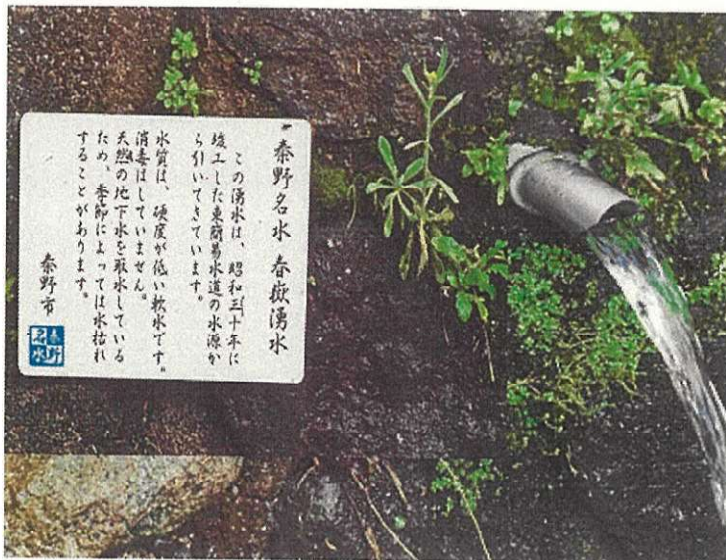 秦野名水 春嶽湧水
この湧水は、昭和三十年に
竣工した東簡易水道の水源か
ら引いてきています。
水質は、硬度が低い軟水です。
消毒はしていません。
天然の地下水を取水している
ため、季節によっては水枯れ
することがあります。
秦野市
秦野
名水